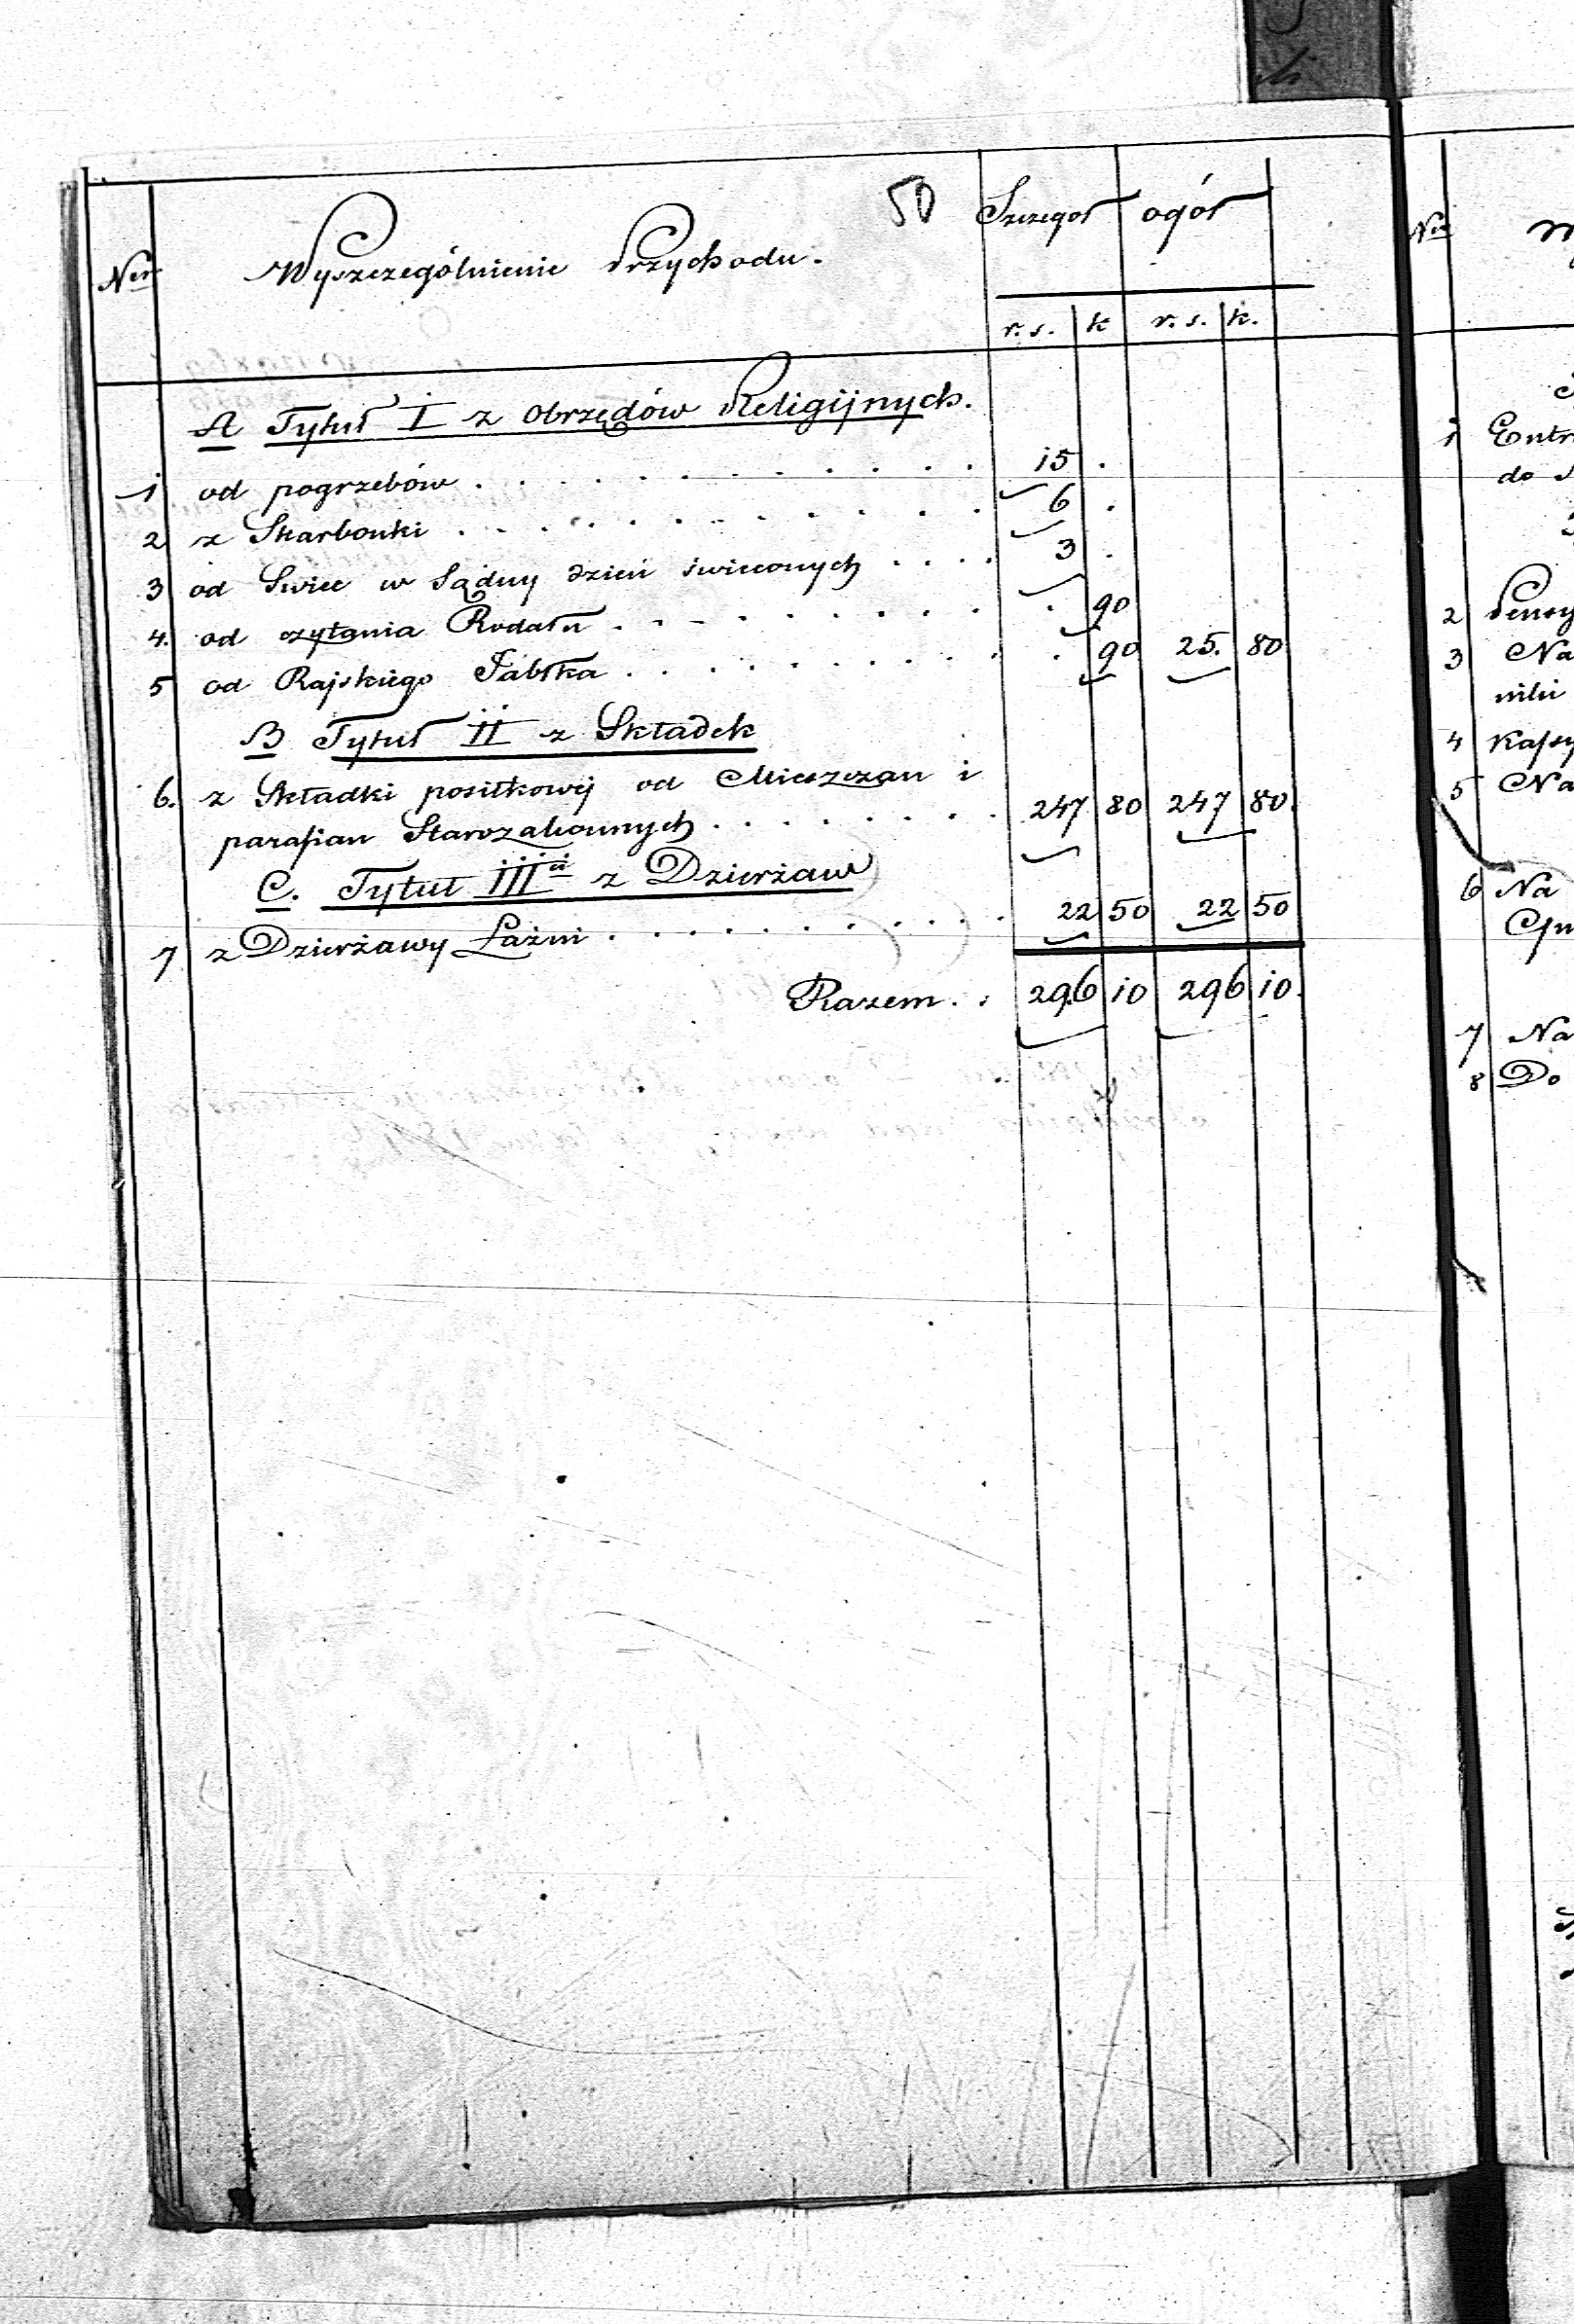 50
Szczegół ogół
Ner Wyszczególnienie Przychodu.
r. s. k r. s. k.
A Tytuł I z obrzędów Religijnych.
1 od pogrzebów . . . . . . . . 15 .
2 z Skarbonki . . . . . . . . 6 .
3 od Swiec w Sądny dzień swieconych . . . . 3 .
4. od czytania Rodału . . . . . . . . . 90
5 od Rajskiego Jabłka . . . . . . . . . 90 25. 80
B Tytuł II z Składek
6. z Składki posiłkowej od Mieszczan i
parafian Starozakonnych . . . . . . . . 247 80 247 80.
C. Tytuł III z Dzierżaw
7 z Dzierżawy Łaźni . . . . . . . . . 22 50 22 50
Razem . . 296 10 296 10.
Ner
1 Entr
do
2 Pensy
3 Na
niki
4 Kapy
5 Na
6 Na
7 Na
8 Do